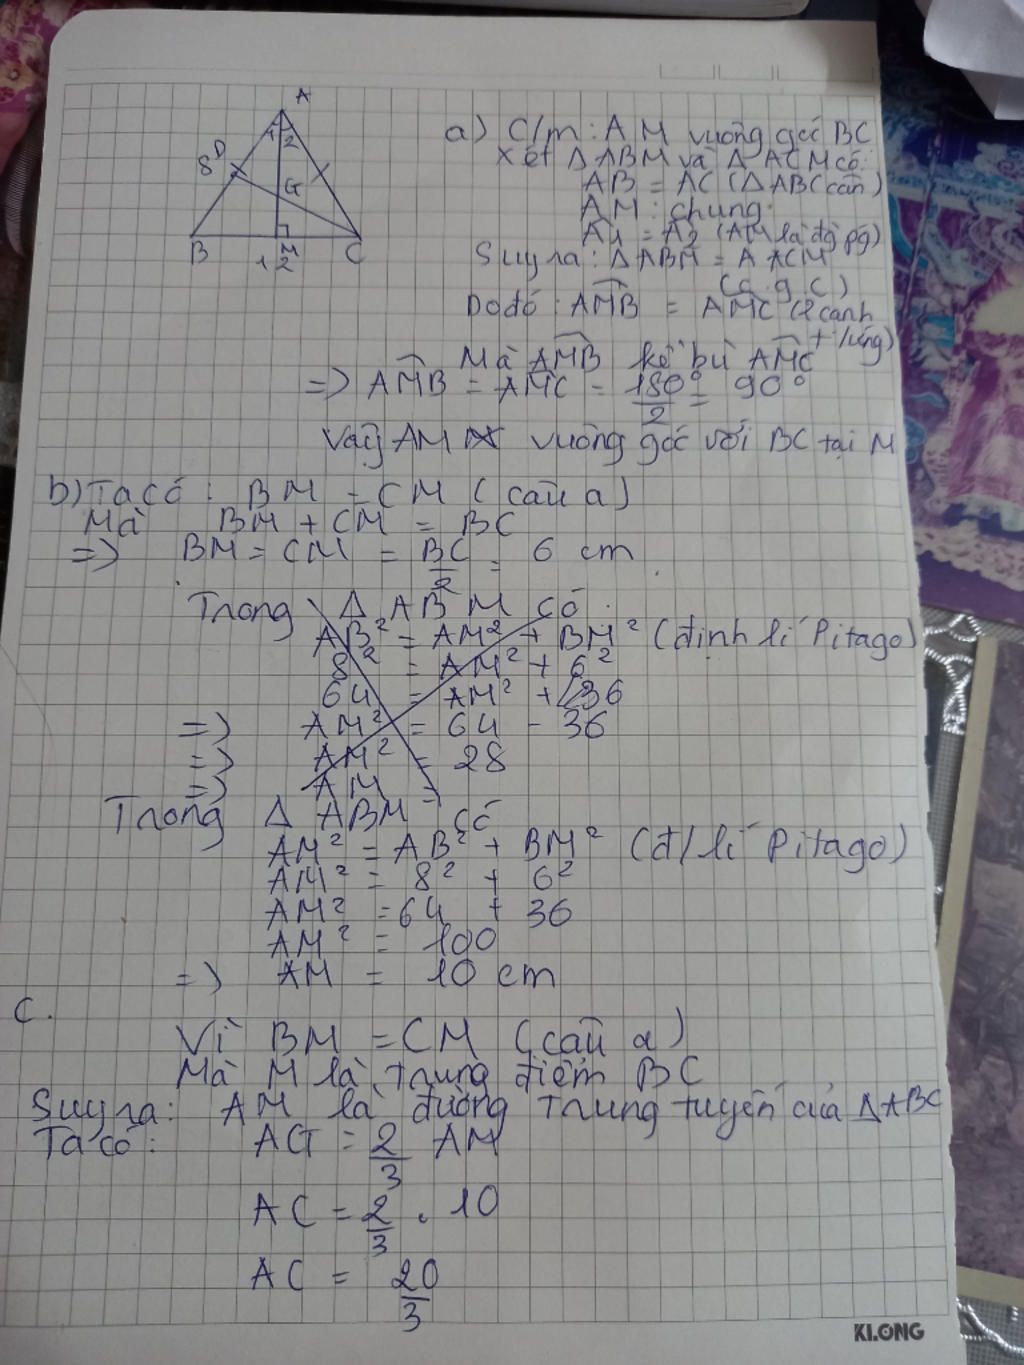 A
1 2
8 D
G
B M C
12
a) C/m: AM vuông góc BC
Xét Δ ABM và Δ ACM có:
AB = AC (Δ ABC cân)
AM: chung
A1 = A2 (AM là đg pg)
Suy ra: Δ ABM = Δ ACM
(c.g.c)
Do đó: AMB = AMC (2 cạnh
t/ứng)
Mà AMB kề bù AMC
=> AMB = AMC = 180°/2 = 90°
Vậy AM vuông góc với BC tại M
b) Ta có: BM = CM (câu a)
Mà BM + CM = BC
=> BM = CM = BC/2 = 6 cm
Trong Δ ABM có:
AB² = AM² + BM² (định lí Pitago)
8² = AM² + 6²
64 = AM² + 36
=> AM² = 64 - 36
=> AM² = 28
=> AM =
Trong Δ ABM có
AM² = AB² + BM² (đ/lí Pitago)
AM² = 8² + 6²
AM² = 64 + 36
AM² = 100
=> AM = 10 cm
c.
Vì BM = CM (câu a)
Mà M là trung điểm BC
Suy ra: AM là đường trung tuyến của Δ ABC
Ta có: AG = 2/3 AM
AC = 2/3 . 10
AC = 20/3
KLONG